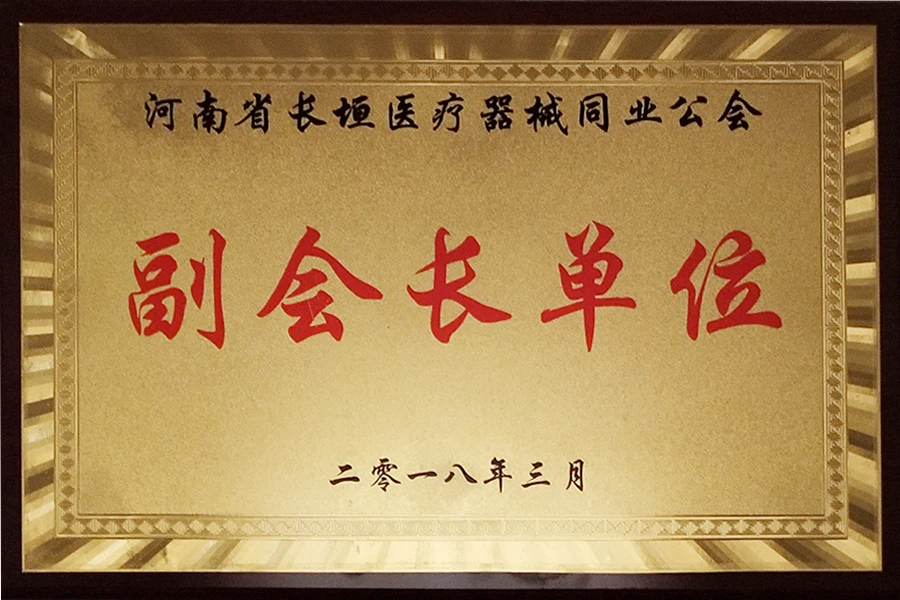 河南省长垣医疗器械同业公会
副会长单位
二零一八年三月